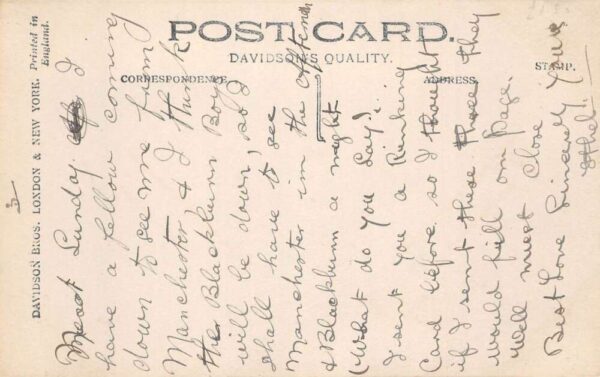 POST CARD.
DAVIDSON'S QUALITY.
CORRESPONDENCE.
ADDRESS.
STAMP.
DAVIDSON BROS. LONDON & NEW YORK. Printed in England.
5
Next Sunday I
have a fellow coming
down to see me from
Manchester & I think
the Blackburn Boy
will be down, so I
shall have to see
Manchester in the Afternoon
& Blackburn a night
(What do you Say!.
I sent you a Rinking
Card before so I thought
if I sent these they
would fill one page.
Well must close
Best Love Sincerely Yours
Ethel.